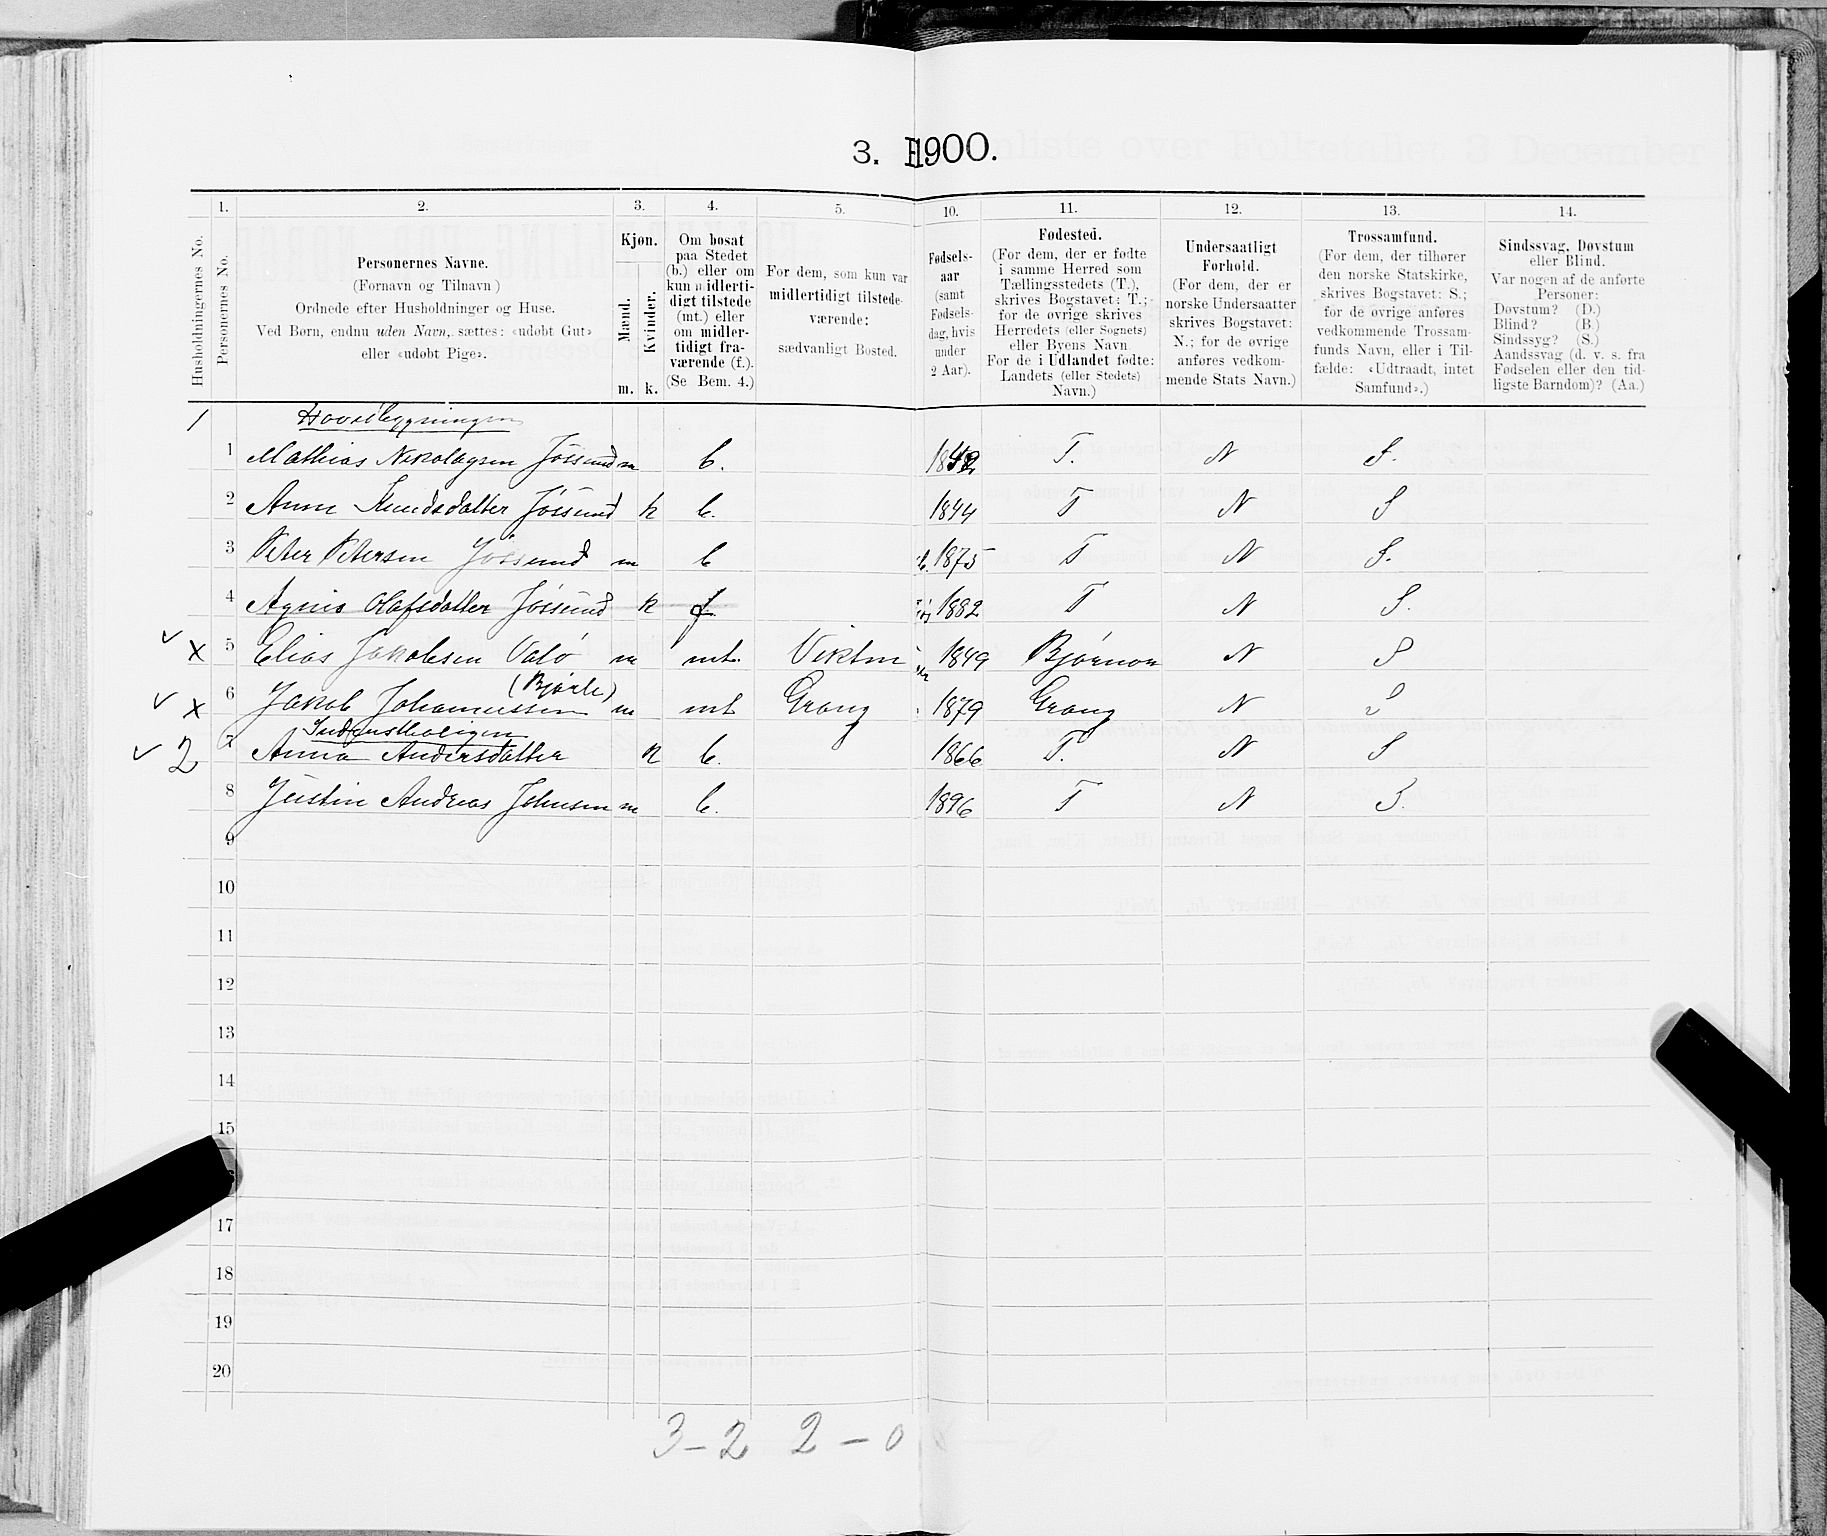 3. 1900.
1. 2. 3. 4. 5. 10. 11. 12. 13. 14.
Husholdningernes No.
Personernes No.
Personernes Navne.
(Fornavn og Tilnavn)
Ordnede efter Husholdninger og Huse.
Ved Børn, endnu uden Navn, sættes: «udøbt Gut»
eller «udøbt Pige».
Kjøn.
Mænd.
Kvinder.
m. k.
Om bosat
paa Stedet
(b.) eller om
kun midlerti-
digt tilstede
(mt.) eller
om midler-
tidigt fra-
værende (f.).
(Se Bem. 4.)
For dem, som kun var
midlertidigt tilstede-
værende:
sædvanligt Bosted.
Fødsels-
aar
(samt
Fødsels-
dag, hvis
under
2 Aar).
Fødested.
(For dem, der er fødte
i samme Herred som
Tællingsstedets (T.),
skrives Bogstavet: T.;
for de øvrige skrives
Herredets (eller Sognets)
eller Byens Navn.
For de i Udlandet fødte:
Landets (eller Stedets)
Navn.)
Undersaatligt
Forhold.
(For dem, der er
norske Undersaatter
skrives Bogstavet:
N.; for de øvrige
anføres vedkom-
mende Stats Navn.)
Trossamfund.
(For dem, der tilhører
den norske Statskirke,
skrives Bogstavet: S.;
for de øvrige anføres
vedkommende Trossam-
funds Navn, eller i Til-
fælde: «Udtraadt, intet
Samfund».)
Sindssvag, Døvstum
eller Blind.
Var nogen af de anførte
Personer:
Døvstum? (D.)
Blind? (B.)
Sindssyg? (S.)
Aandssvag (d. v. s. fra
Fødselen eller den tid-
ligste Barndom)? (Aa.)
1 Hovedbygningen
1 Mathias Nikolaysen Jøssund m b. T. N S.
2 Anne Knudsdatter Jøssund k b. 1844 T N S
3 Peter Petersen Jøssund m b 1875 T N S.
4 Agnis Olafsdatter Jøssund k f 1882 T N S.
✓ x 5 Elias Jakobsen Valø m mt. Vikten 1849 Bjørnør N S
(Bjørli)
✓ x 6 Jakob Johannessen m mt Grong 1879 Grong N S
Inderstboligen
✓ 2 7 Anna Andersdatter k b. 1866 T. N S
8 Justin Andreas Johnsen m b. 1896 T N S.
9
10
11
12
13
14
15
17
18
19
20
3 – 2 2 – 0